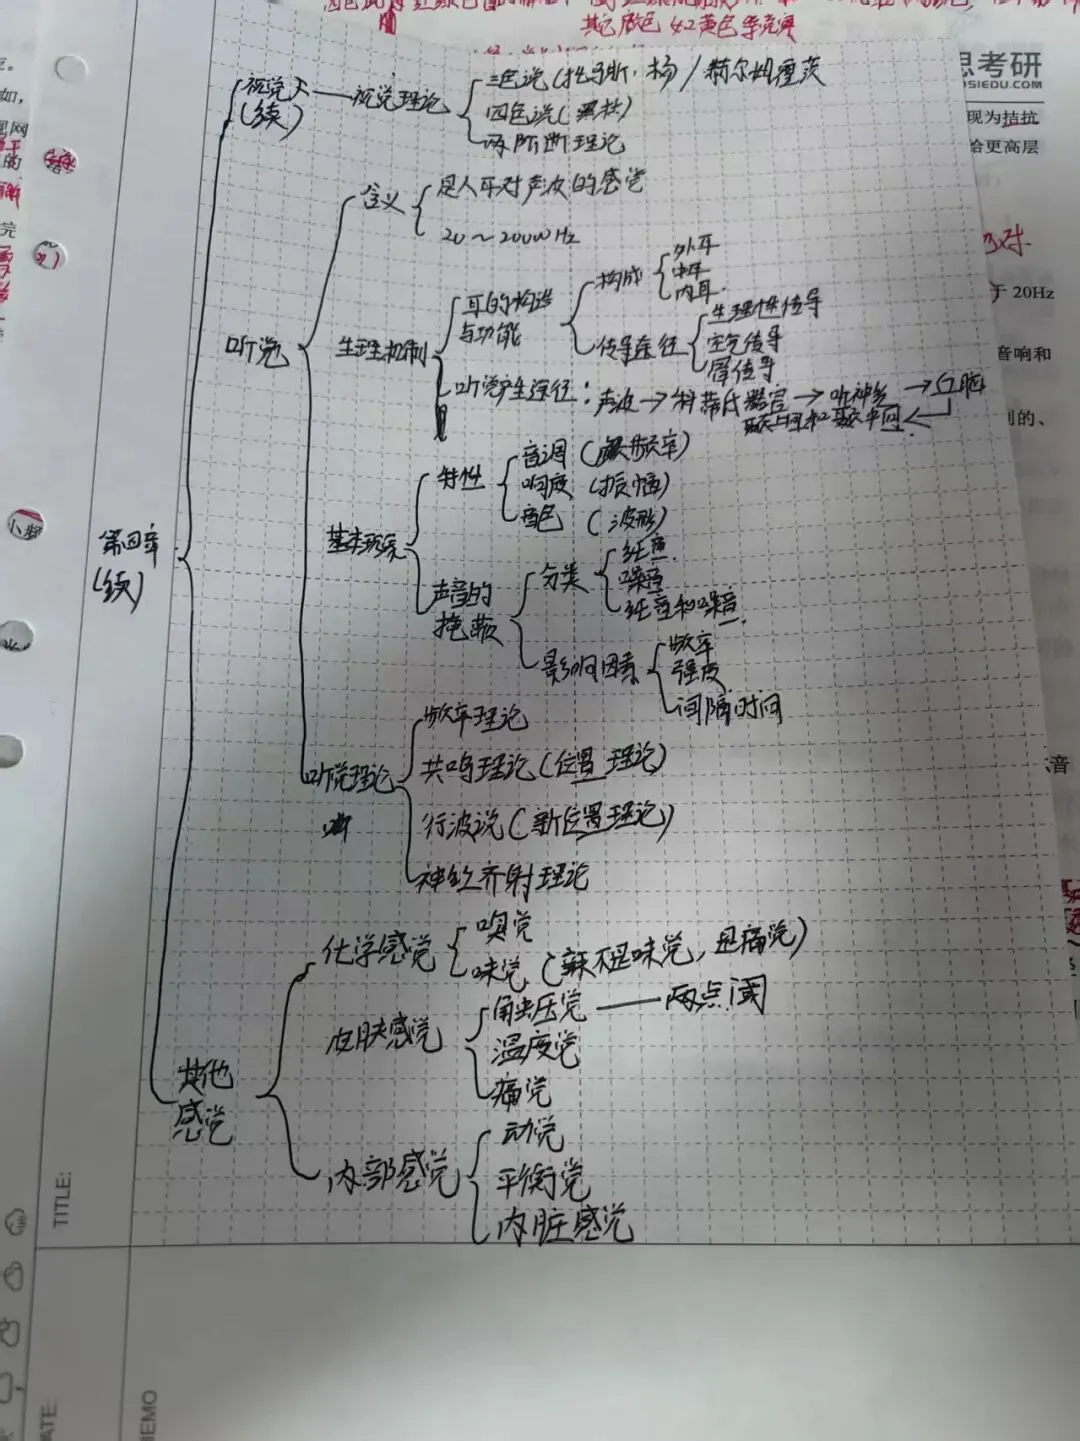 其它颜色
思考研
OSIEDU.COM
现为拮抗
给更高层
于 20Hz
音响和
如,
的
完
第四章
(续)
视觉
(续)
视觉理论
三色说(托马斯·杨)/赫尔姆霍茨
四色说(黑林)
两阶段理论
听觉
含义
是人耳对声波的感觉
20~20000Hz
生理机制
耳的构造
与功能
构成
外耳
中耳
内耳
传导途径
生理性传导
空气传导
骨传导
听觉产生途径:声波→科蒂氏器官→听神经→大脑
基本现象
特性
音调(频率)
响度(振幅)
音色(波形)
声音的
掩蔽
分类
纯音
噪音
纯音和噪音
影响因素
频率
强度
间隔时间
听觉理论
频率理论
共鸣理论(位置理论)
行波说(新位置理论)
神经齐射理论
其他
感觉
化学感觉
嗅觉
味觉(辣不是味觉,是痛觉)
皮肤感觉
触压觉——两点阈
温度觉
痛觉
内部感觉
动觉
平衡觉
内脏感觉
TITLE: